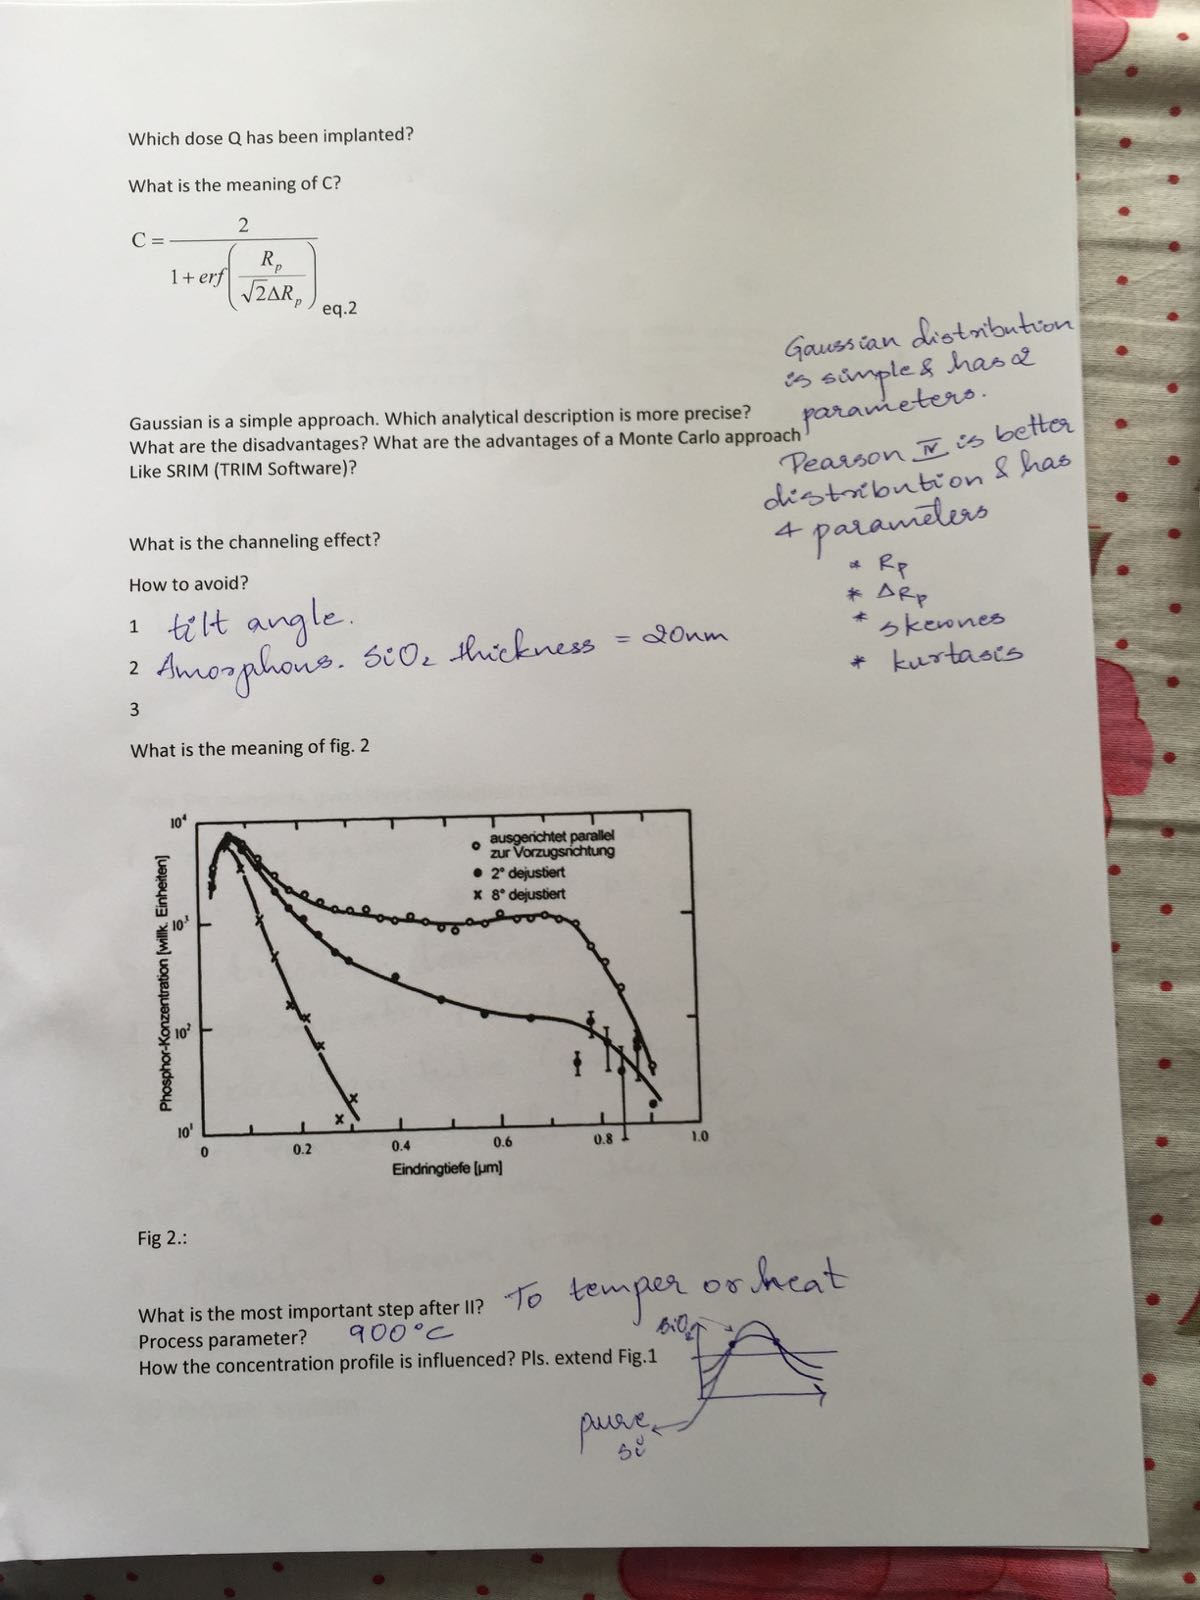 Which dose Q has been implanted?
What is the meaning of C?
C = 2 / (1 + erf(R_p / (√2ΔR_p))) eq.2
Gaussian distribution
is simple & has 2
parameters.
Gaussian is a simple approach. Which analytical description is more precise?
What are the disadvantages? What are the advantages of a Monte Carlo approach
Like SRIM (TRIM Software)?
Pearson IV is better
distribution & has
4 parameters
* Rp
* ΔRp
* skewnes
* kurtasis
What is the channeling effect?
How to avoid?
1 tilt angle.
2 Amorphous. SiO2 thickness = 20nm
3
What is the meaning of fig. 2
ausgerichtet parallel
zur Vorzugsrichtung
2° dejustiert
8° dejustiert
Phosphor-Konzentration [willk. Einheiten]
10⁴
10³
10²
10¹
0 0.2 0.4 0.6 0.8 1.0
Eindringtiefe [µm]
Fig 2.:
What is the most important step after II? To temper or heat
Process parameter? 900°C
How the concentration profile is influenced? Pls. extend Fig.1
SiO2
pure
si